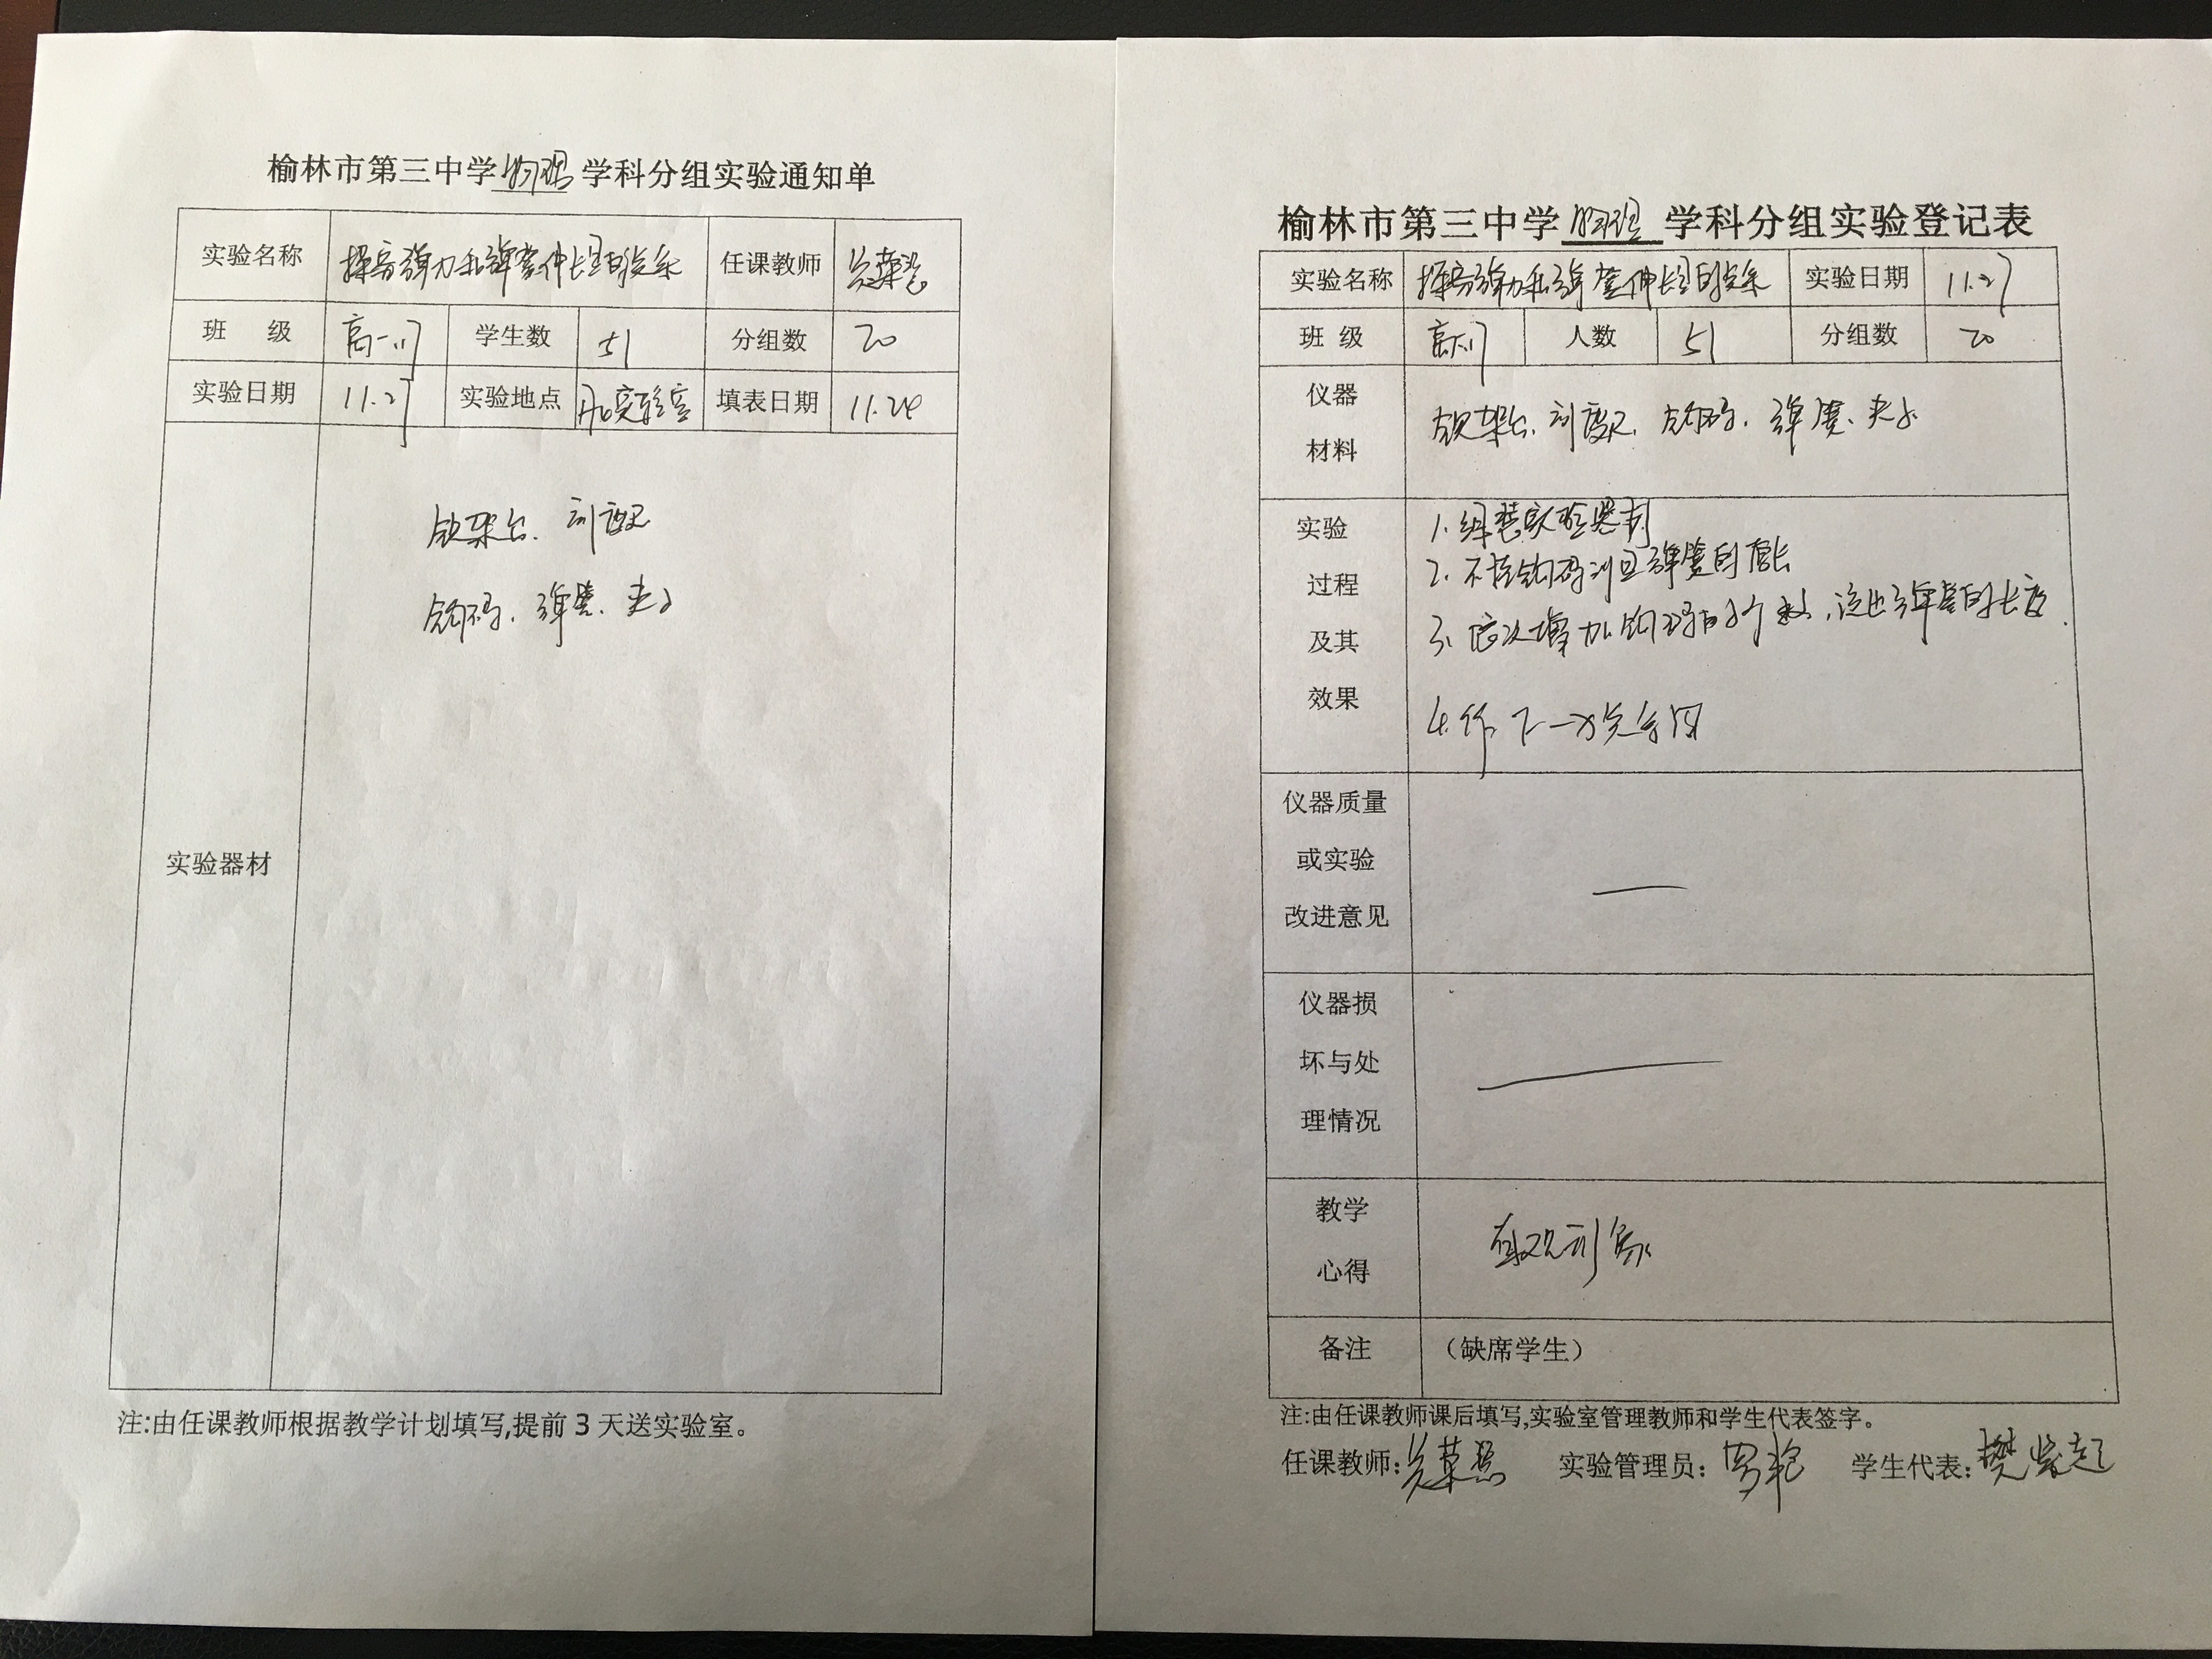 榆林市第三中学物理学科分组实验通知单
实验名称 探究弹力和弹簧伸长量的关系 任课教师
班 级 高一.17 学生数 51 分组数 20
实验日期 11.27 实验地点 实验室 填表日期 11.24
实验器材
铁架台、刻度尺
钩码、弹簧、夹子
注:由任课教师根据教学计划填写,提前3天送实验室。
榆林市第三中学物理学科分组实验登记表
实验名称 探究弹力和弹簧伸长量的关系 实验日期 11.27
班 级 人数 51 分组数 20
仪器材料
铁架台、刻度尺、钩码、弹簧、夹子
实验过程及其效果
1.组装实验器材
2.不挂钩码测量弹簧的原长
3.依次增加钩码的个数,读出弹簧的长度.
4.作F-x关系图
仪器质量或实验改进意见 —
仪器损坏与处理情况 —
教学心得 直观形象
备注 (缺席学生)
注:由任课教师课后填写,实验室管理教师和学生代表签字。
任课教师: 实验管理员: 学生代表: